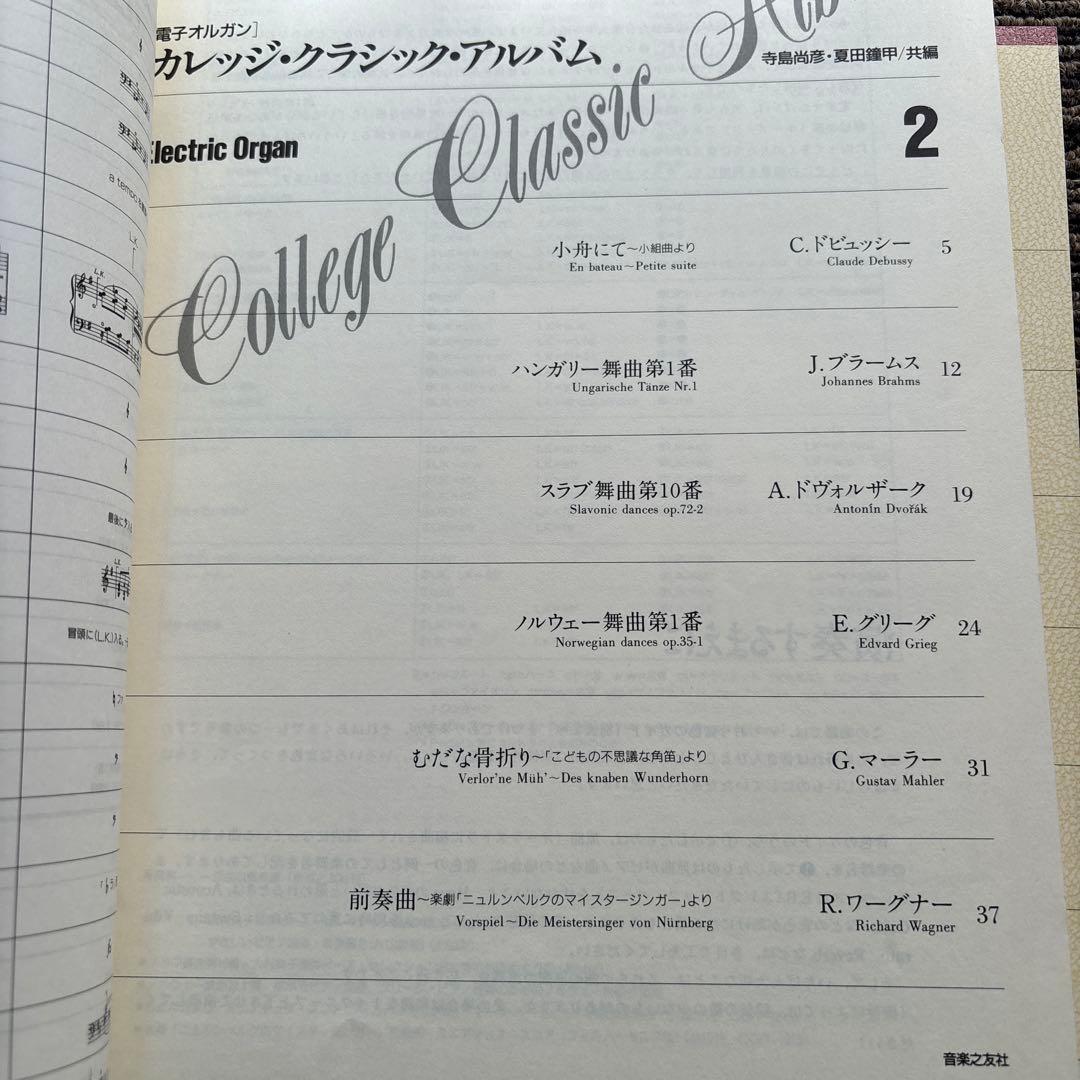 電子オルガン］
カレッジ・クラシック・アルバム
寺島尚彦・夏田鐘甲/共編
Electric Organ
2
College Classic
小舟にて〜小組曲より C.ドビュッシー 5
En bateau〜Petite suite Claude Debussy
ハンガリー舞曲第1番 J.ブラームス 12
Ungarische Tänze Nr.1 Johannes Brahms
スラブ舞曲第10番 A.ドヴォルザーク 19
Slavonic dances op.72-2 Antonín Dvořák
ノルウェー舞曲第1番 E.グリーグ 24
Norwegian dances op.35-1 Edvard Grieg
むだな骨折り〜「こどもの不思議な角笛」より G.マーラー 31
Verlor'ne Müh'〜Des knaben Wunderhorn Gustav Mahler
前奏曲〜楽劇「ニュルンベルクのマイスタージンガー」より R.ワーグナー 37
Vorspiel〜Die Meistersinger von Nürnberg Richard Wagner
音楽之友社
a tempo
L.K.
L.K.
最後に
冒頭に(L.K.)入る。